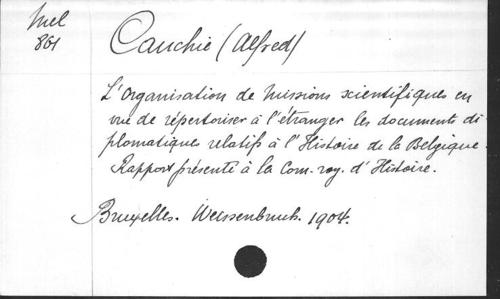 Mel
861
Cauchie (Alfred)
L'Organisation de Missions scientifiques en
vue de répertorier à l'étranger les documents di
plomatiques relatifs à l'Histoire de la Belgique.
Rapport présenté à la Com. roy. d'Histoire.
Bruxelles. Weissenbruch. 1904.